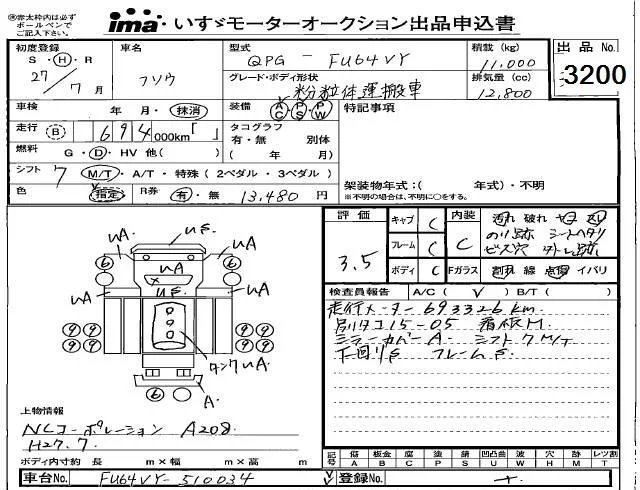 ※赤太枠内は必ず
ボールペンで
ご記入下さい。
ima・いすゞモーターオークション出品申込書
初度登録
S・H・R
27/7月
車名
フソウ
型式
QPG-FU64VY
積載(kg)
11,000
出品No.
3200
グレード・ボディ形状
粉粒体運搬車
排気量(cc)
12,800
車検
年・月・抹消
装備
AC PS PW
特記事項
走行
B 694,000km「」
タコグラフ
有・無 別体
(年 月)
燃料
G・D・HV 他( )
シフト
7 M/T・A/T・特殊(2ペダル・3ペダル)
架装物年式:( 年式)・不明
※不明の場合は、不明に○をする。
色
指定
R券
有・無 13,480円
評価
3.5
キャブ C
フレーム C
ボディ C
内装
C
汚れ 破れ ヤニ スリ
のり跡 シートヘタリ
ビス穴
Fガラス
割れ 線 点傷 イバリ
検査員報告
A/C( ∨ ) B/T( )
走行メーター693326km
別タコ15-05 看板M.
ミラーカバーA. シフト7M/T
下回りS フレームS.
uA.
uS.
uA.
uA
uS.
uA
uA
タンクuA
A.
6
6
9 9
9 9
9 9
9 9
6
上物情報
NLコーポレーション A208.
H27.7
ボディ内寸約 長 m×幅 m×高 m
記号
傷 A
板金 B
腐 C
塗 P
錆 S
凹凸曲 U
波 W
穴 H
跡 M
レツ割 T
車台No.
FU64VY-510034
登録No.